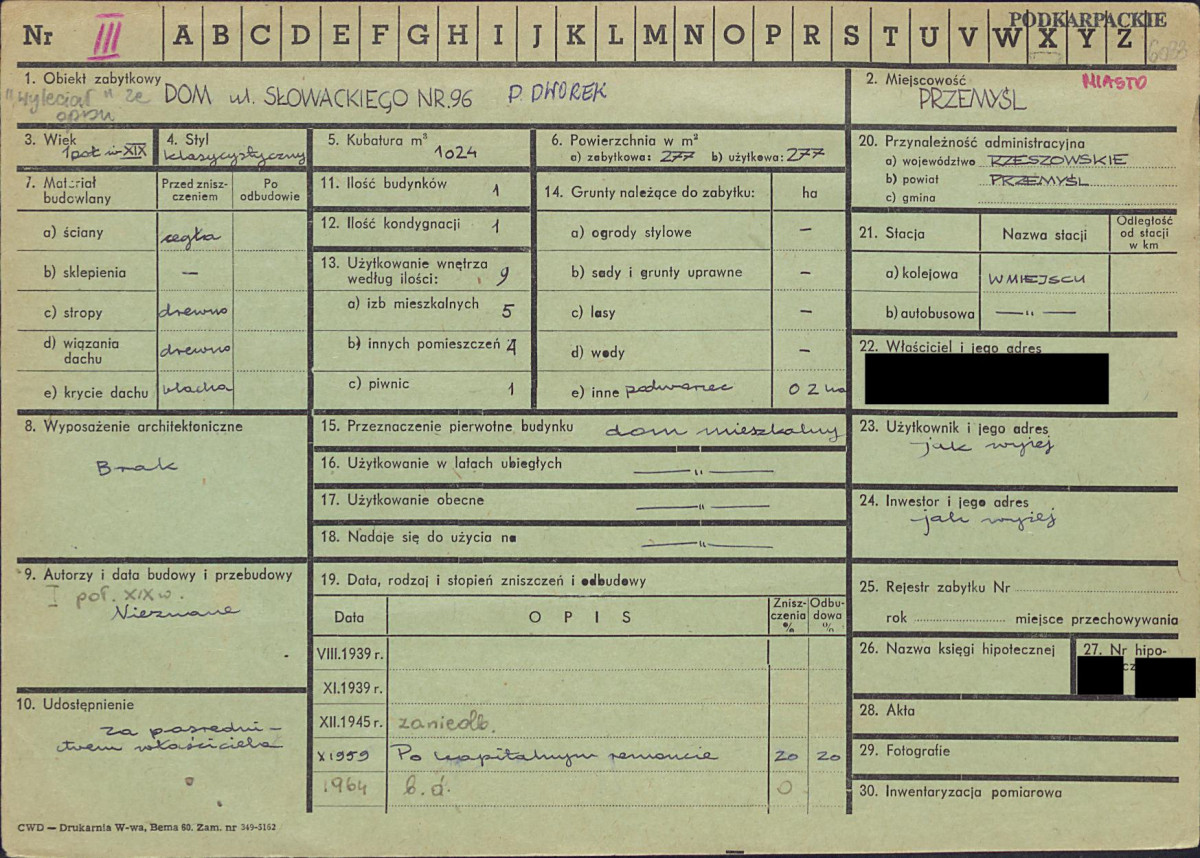 PODKARPACKIE
Nr III A B C D E F G H I J K L M N O P R S T U V W X Y Z
1. Obiekt zabytkowy
"wyleciał" ze
DOM ul. SŁOWACKIEGO NR.96 D. DWOREK
2. Miejscowość
MIASTO
PRZEMYŚL
3. Wiek
1 poł. w. XIX
4. Styl
klasycystyczny
5. Kubatura m³
1024
6. Powierzchnia w m²
a) zabytkowa: 277 b) użytkowa: 277
20. Przynależność administracyjna
a) województwo RZESZOWSKIE
b) powiat PRZEMYŚL
c) gmina
7. Materiał budowlany
Przed znisz-
czeniem
Po
odbudowie
a) ściany cegła
b) sklepienia —
c) stropy drewno
d) wiązania
dachu drewno
e) krycie dachu blacha
11. Ilość budynków 1
12. Ilość kondygnacji 1
13. Użytkowanie wnętrza
według ilości: 9
a) izb mieszkalnych 5
b) innych pomieszczeń 4
c) piwnic 1
14. Grunty należące do zabytku: ha
a) ogrody stylowe —
b) sady i grunty uprawne —
c) lasy —
d) wody —
e) inne podwórzec 0 2 ha
21. Stacja
Nazwa stacji
Odległość
od stacji
w km
a) kolejowa W MIEJSCU
b) autobusowa — " —
22. Właściciel i jego adres
8. Wyposażenie architektoniczne
Brak
15. Przeznaczenie pierwotne budynku dom mieszkalny
16. Użytkowanie w latach ubiegłych — " —
17. Użytkowanie obecne — " —
18. Nadaje się do użycia na — " —
23. Użytkownik i jego adres
jak wyżej
24. Inwestor i jego adres
jak wyżej
9. Autorzy i data budowy i przebudowy
I poł. XIX w.
Nieznane
10. Udostępnienie
za pośredni-
ctwem właściciela
19. Data, rodzaj i stopień zniszczeń i odbudowy
Data
O P I S
Znisz-
czenia
%
Odbu-
dowa
%
VIII.1939 r.
XI.1939 r.
XII.1945 r. zaniedb.
X 1959 Po kapitalnym remoncie 20 20
1964 b.d. 0
25. Rejestr zabytku Nr
rok miejsce przechowywania
26. Nazwa księgi hipotecznej
27. Nr hipo-
28. Akta
29. Fotografie
30. Inwentaryzacja pomiarowa
CWD — Drukarnia W-wa, Bema 60. Zam. nr 349-5162